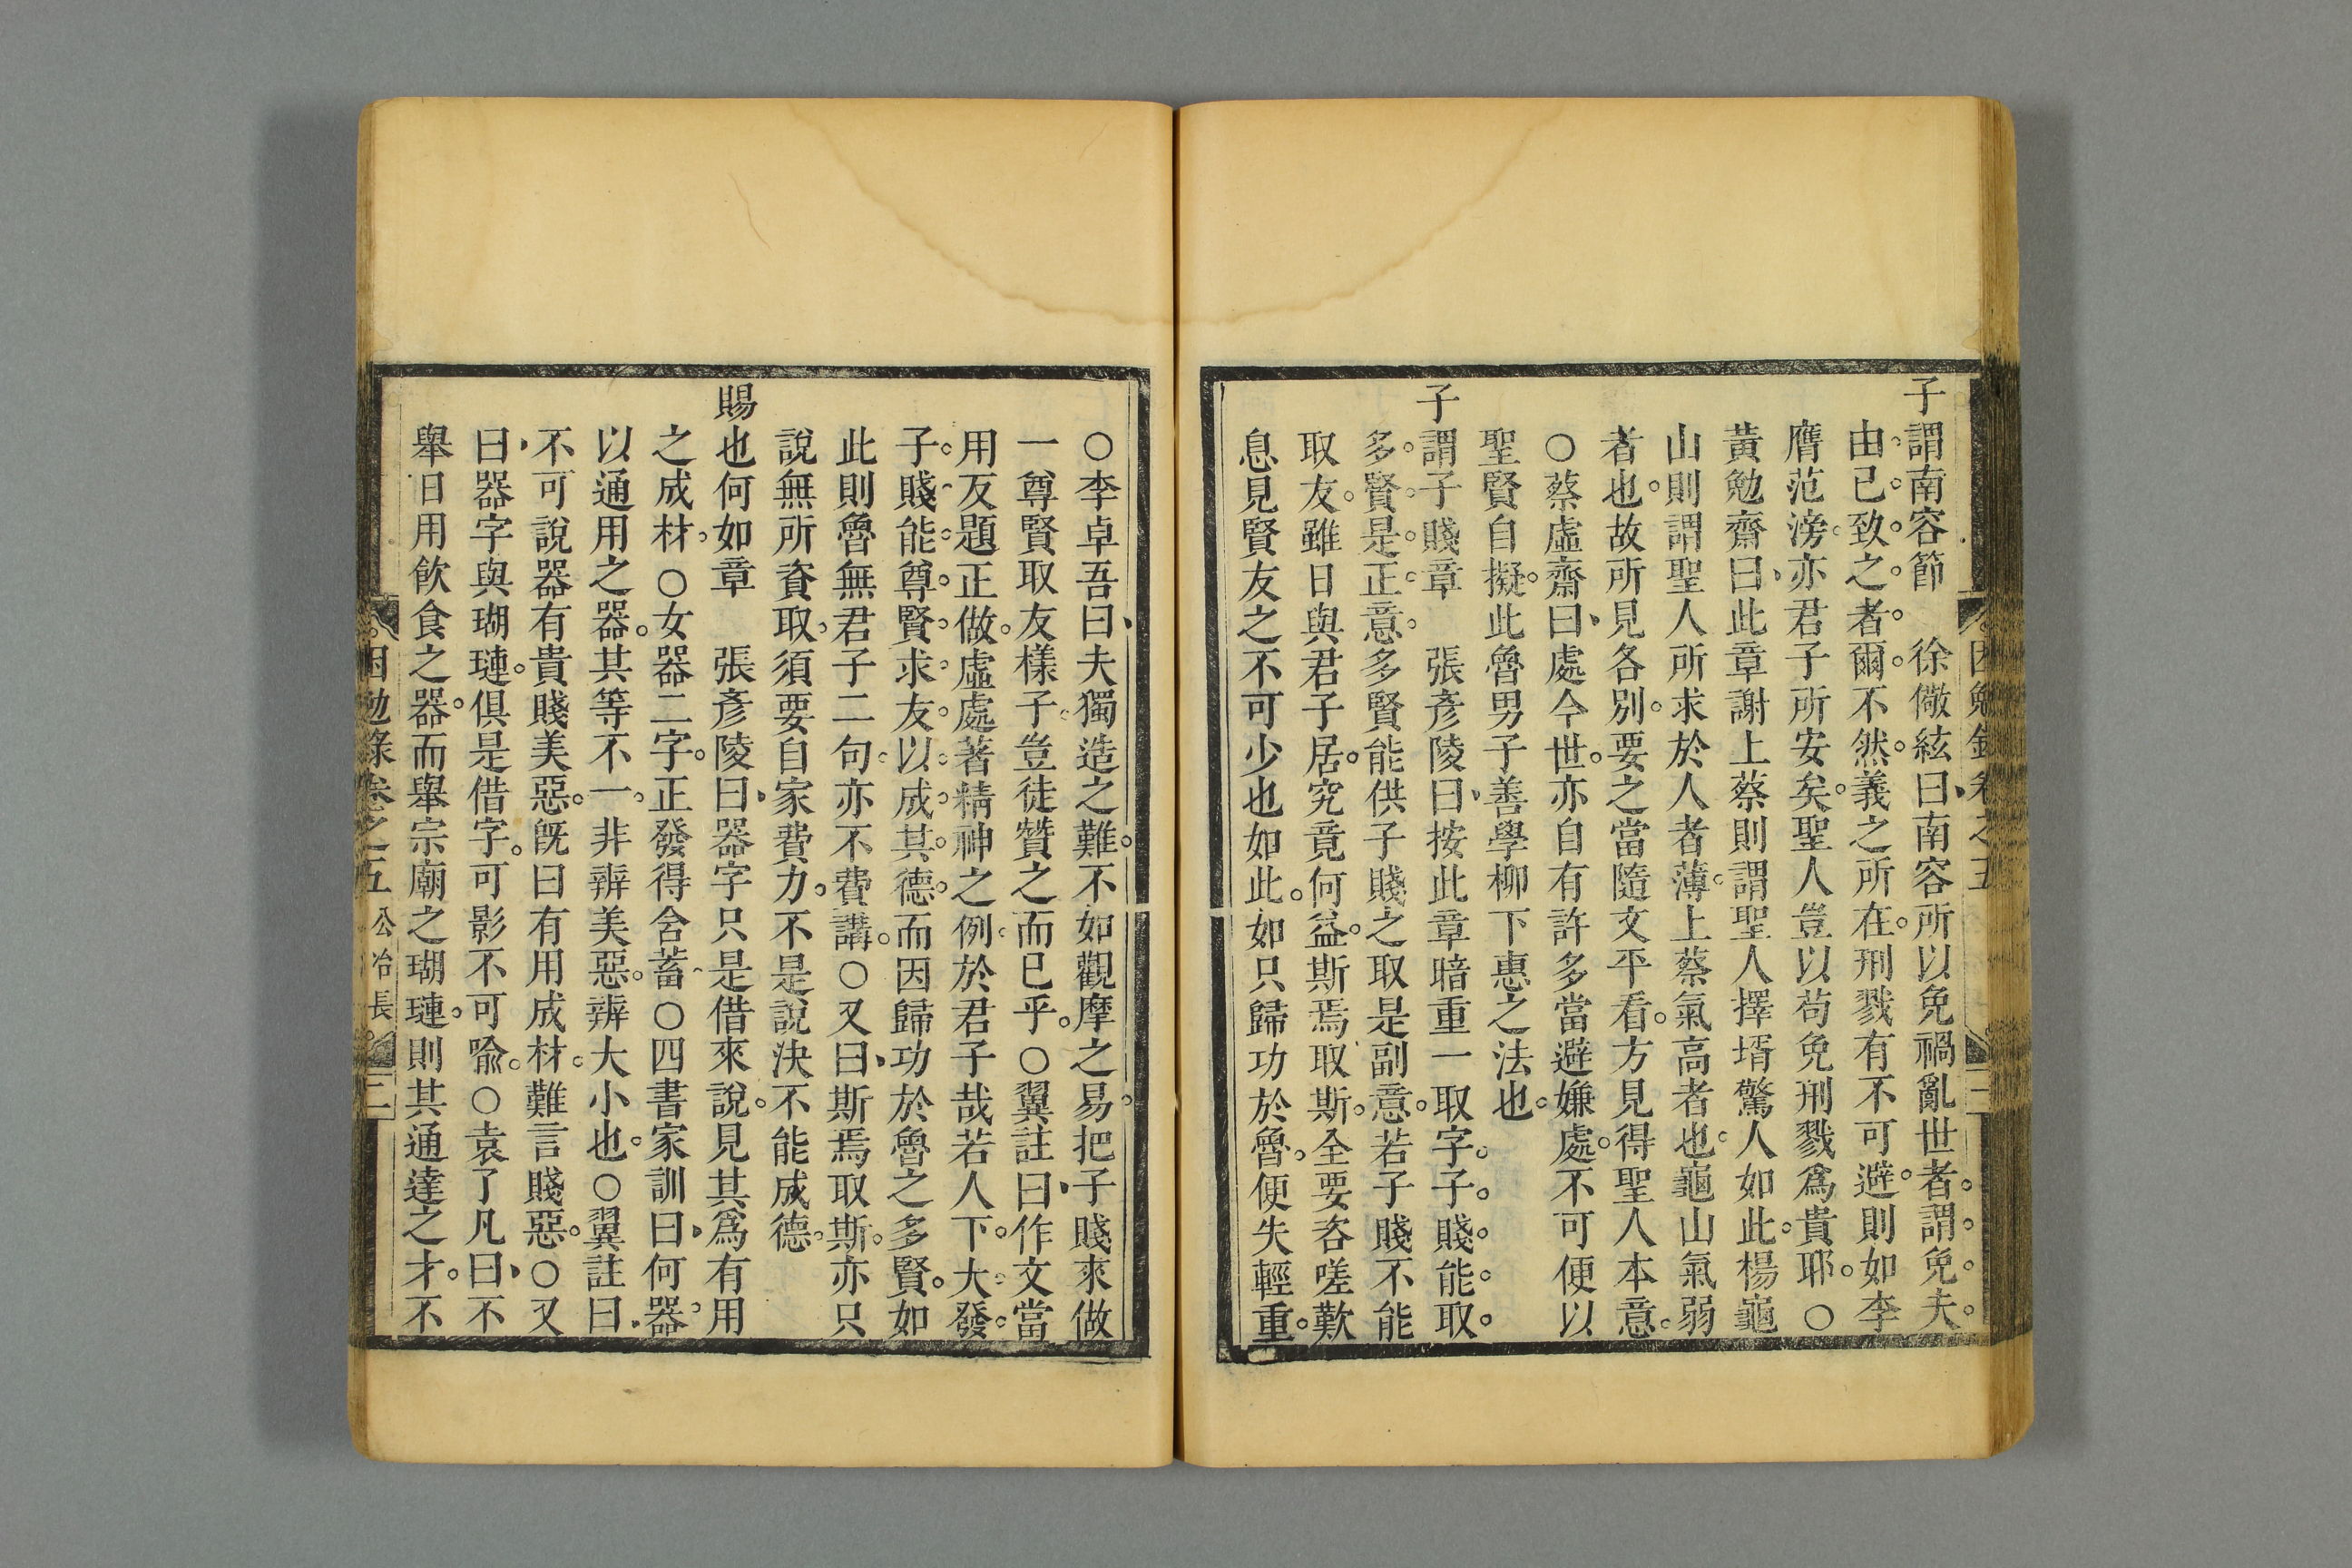 子謂南容節　徐儆絃曰南容所以免禍亂世者謂免夫
由己致之者爾不然義之所在刑戮有不可避則如李
膺范滂亦君子所安矣聖人豈以苟免刑戮爲貴耶○
黃勉齋曰此章謝上蔡則謂聖人擇壻驚人如此楊龜
山則謂聖人所求於人者薄上蔡氣高者也龜山氣弱
者也故所見各別要之當隨文平看方見得聖人本意
○蔡虛齋曰處今世亦自有許多當避嫌處不可便以
聖賢自擬此魯男子善學柳下惠之法也
子謂子賤章　張彥陵曰按此章暗重一取字子賤能取
多賢是正意多賢能供子賤之取是副意若子賤不能
取友雖日與君子居究竟何益斯焉取斯全要咨嗟歎
息見賢友之不可少也如此如只歸功於魯便失輕重
○李卓吾曰夫獨造之難不如觀摩之易把子賤來做
一尊賢取友樣子豈徒贊之而已乎○翼註曰作文當
用反題正做虛處著精神之例於君子哉若人下大發
子賤能尊賢求友以成其德而因歸功於魯之多賢如
此則魯無君子二句亦不費講○又曰斯焉取斯亦只
說無所資取須要自家費力不是說決不能成德
賜也何如章　張彥陵曰器字只是借來說見其爲有用
之成材○女器二字正發得含蓄○四書家訓曰何器
以通用之器其等不一非辨美惡辨大小也○翼註曰
不可說器有貴賤美惡旣曰有用成材難言賤惡○又
曰器字與瑚璉俱是借字可影不可喩○袁了凡曰不
舉日用飲食之器而舉宗廟之瑚璉則其通達之才不
困勉錄卷之五　公冶長　三